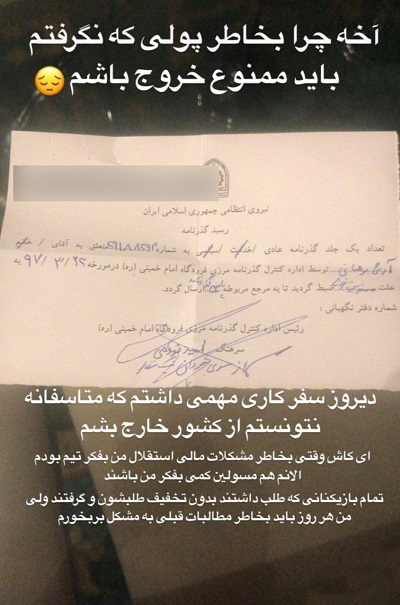 آخه چرا بخاطر پولی که نگرفتم
باید ممنوع خروج باشم 😔
نیروی انتظامی جمهوری اسلامی ایران
رسید گذرنامه
تعداد یک جلد گذرنامه عادی /خدمت /سیاسی به شماره متعلق به آقای / خانم
توسط اداره کنترل گذرنامه مرزی فرودگاه امام خمینی (ره) درمورخه ۹۷/۳/۲۲ به
علت ضبط گردید تا به مرجع مربوطه ارسال گردد.
شماره دفتر نگهبانی :
رئیس اداره کنترل گذرنامه مرزی فرودگاه امام خمینی (ره)
سرهنگ
دیروز سفر کاری مهمی داشتم که متاسفانه
نتونستم از کشور خارج بشم
ای کاش وقتی بخاطر مشکلات مالی استقلال من بفکر تیم بودم
الانم هم مسولین کمی بفکر من باشند
تمام بازیکنانی که طلب داشتند بدون تخفیف طلبشون و گرفتند ولی
من هر روز باید بخاطر مطالبات قبلی به مشکل بربخورم